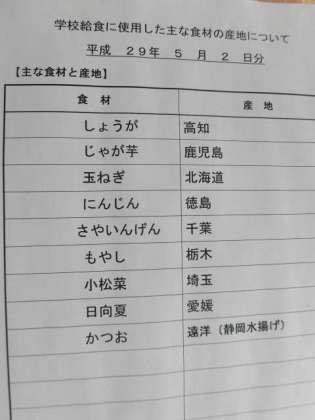 学校給食に使用した主な食材の産地について
平成 29年 5 月 2 日分
【主な食材と産地】
食 材 産 地
しょうが 高知
じゃが芋 鹿児島
玉ねぎ 北海道
にんじん 徳島
さやいんげん 千葉
もやし 栃木
小松菜 埼玉
日向夏 愛媛
かつお 遠洋（静岡水揚げ）